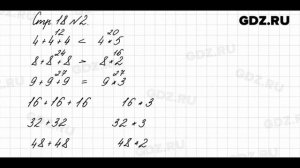 Стр. 18 №2.
GDZ.RU
12 20
4+4+4 < 4*5
24 16
8+8+8 > 8*2
27 27
9+9+9 = 9*3
16+16+16 16*3
32+32 32*3
48+48 48*2
GDZ.RU
GDZ.RU